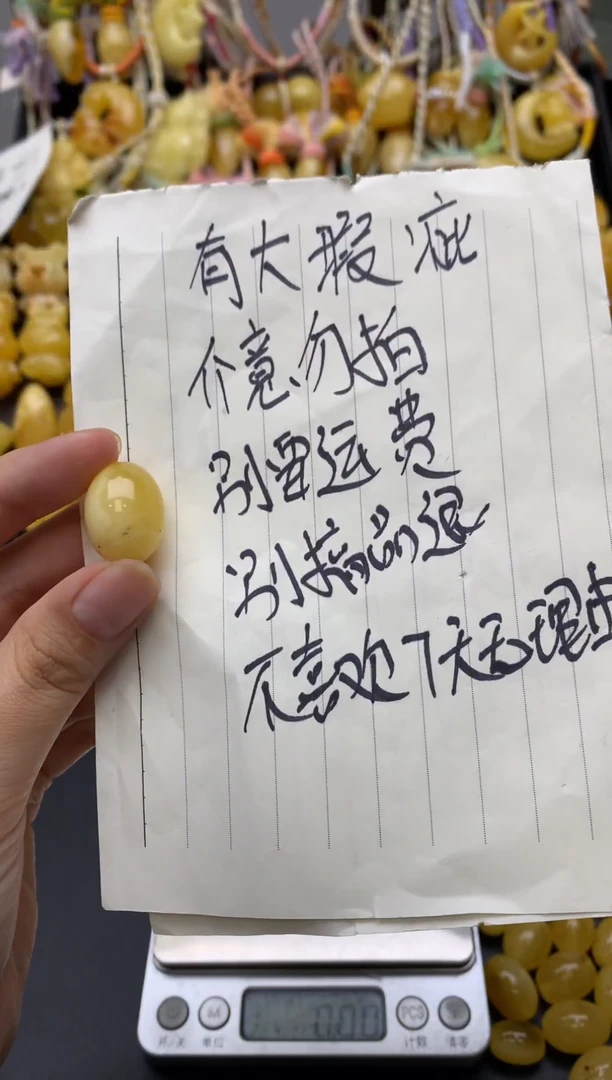 有大瑕疵
介意勿拍
别要运费
别搞仅退
不喜欢7天无理由
0.00
M
PCS
开/关
单位
计数
清零